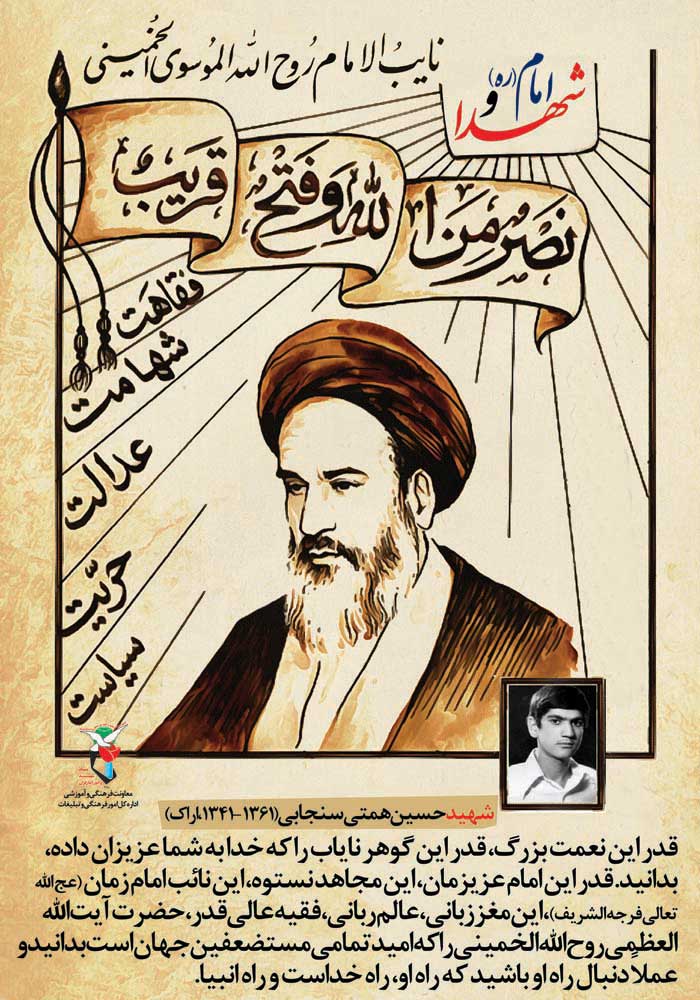 نایبُ الامام رُوح الله الموُسوی الخُمینی
امام (ره)
و
شهدا
نَصرٌ مِنَ اللهِ وَ فَتحٌ قَریبٌ
فقاهت
شهامت
عدالت
حرّیت
سیاست
معاونت فرهنگی و آموزشی
اداره کل امور فرهنگی و تبلیغات
شهید حسین همتی سنجابی (۱۳۶۱-۱۳۴۱،اراک)
قدر این نعمت بزرگ، قدر این گوهر نایاب را که خدا به شما عزیزان داده،
بدانید. قدر این امام عزیزمان، این مجاهد نستوه، این نائب امام زمان (عج الله
تعالی فرجه الشریف)، این مغز زبانی، عالم ربانی، فقیه عالی قدر، حضرت آیت الله
العظمی روح الله الخمینی را که امید تمامی مستضعفین جهان است بدانید و
عملا دنبال راه او باشید که راه او، راه خداست و راه انبیا.